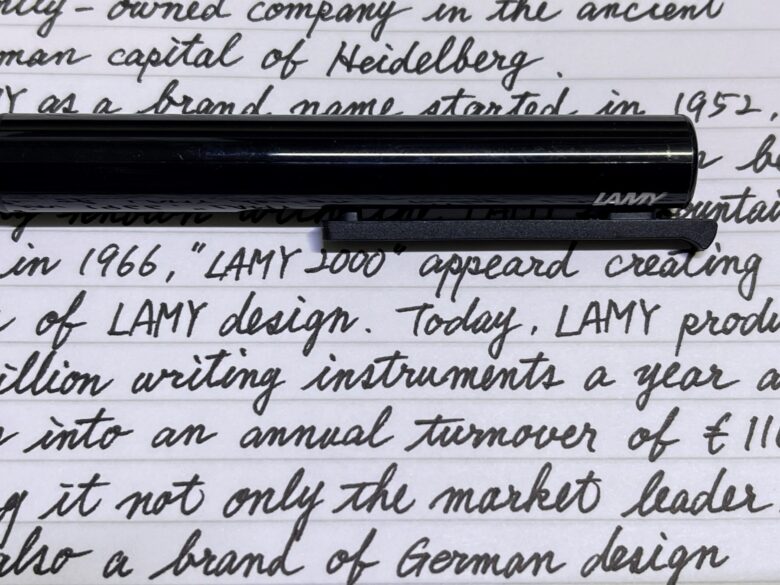 owned company in the ancient
man capital of Heidelberg.
Y as a brand name started in 1952,
LAMY
in 1966, "LAMY 2000" appeard creating
of LAMY design. Today, LAMY produ
illion writing instruments a year a
into an annual turnover of £ 11
g it not only the market leader
also a brand of German design